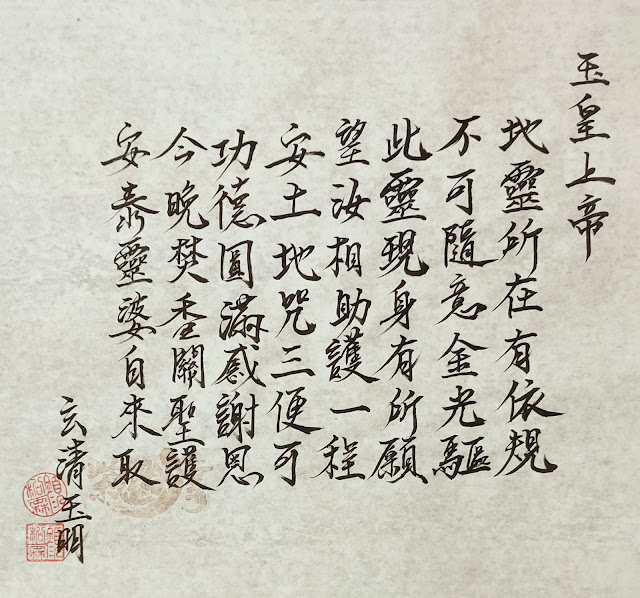 玉皇上帝
地靈所在有依規
不可隨意金光驅
此靈現身有所願
望汝相助護一程
安土地咒三便可
功德圓滿感謝恩
今晚焚香關聖護
安泰靈婆自來取
玄清玉明